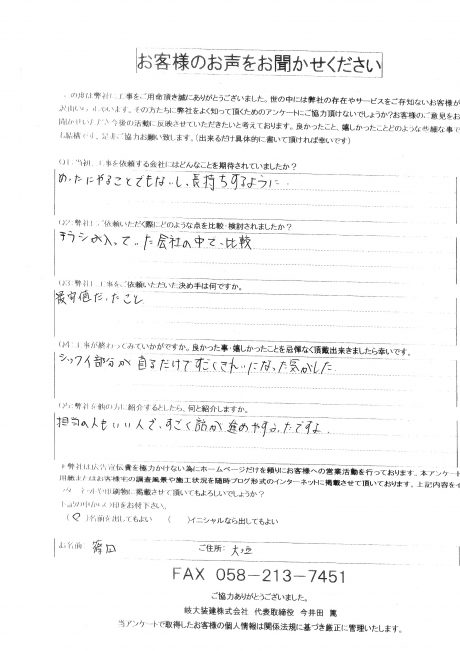 お客様のお声をお聞かせください
この度は弊社に工事をご用命頂き誠にありがとうございました。世の中には弊社の存在やサービスをご存知ないお客様が
沢山いらっしゃいます。その方たちに弊社をよく知って頂くためのアンケートにご協力頂けないでしょうか?お客様のご意見をお
聞かせいただき今後の活動に反映させていただきたいと考えております。良かったこと、嬉しかったことどのような些細な事で
も結構です、是非ご協力お願い致します。(出来るだけ具体的に書いて頂ければ幸いです)
Q1:当初、工事を依頼する会社にはどんなことを期待されていましたか?
めったにやることでもないし、長持ちするように、
Q2:弊社にご依頼いただく際にどのような点を比較・検討されましたか?
チラシの入っていた会社の中で、比較
Q3:弊社に工事をご依頼いただいた決め手は何ですか。
最安値だったこと
Q4:工事が終わってみていかがですか。良かった事・嬉しかったことを忌憚なく頂戴出来きましたら幸いです。
シックイ部分が直るだけですごくきれいになった気がした
Q5:弊社を他の方に紹介するとしたら、何と紹介しますか。
担当の人もいい人で、すごく話が進めやすかったですよ。
※弊社は広告宣伝費を極力かけない為にホームページだけを頼りにお客様への営業活動を行っております。本アンケート
用紙またはお客様宅の調査風景や施工状況を随時ブログ形式のインターネットに掲載させて頂いております。上記内容をイ
ンターネットや印刷物に掲載させて頂いてもよろしいでしょうか?
下記の中から○印をお付け下さい。
(○)名前を出してもよい ( )イニシャルなら出してもよい
お名前: ご住所: 大垣
FAX 058-213-7451
ご協力ありがとうございました。
岐大装建株式会社 代表取締役 今井田 篤
当アンケートで取得したお客様の個人情報は関係法規に基づき厳正に管理いたします。